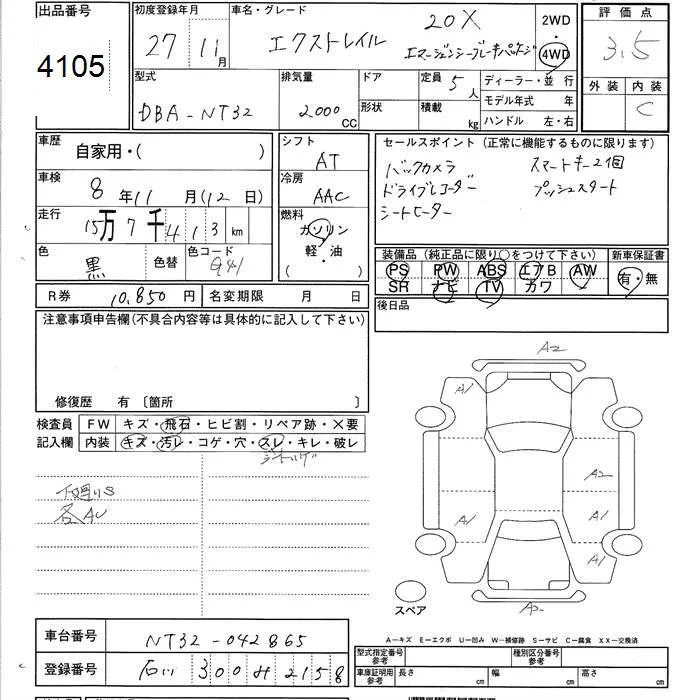 出品番号
4105
初度登録年月
27 11月
車名・グレード
エクストレイル 20X
エマージェンシーブレーキパッケージ
2WD
4WD
評価点
3.5
外装 内装
C
型式
DBA-NT32
排気量
2000 CC
ドア
形状
定員 5人
積載 kg
ディーラー・並行
モデル年式 年
ハンドル 左・右
車歴
自家用・( )
シフト
AT
セールスポイント (正常に機能するものに限ります)
バックカメラ スマートキー2個
ドライブレコーダー プッシュスタート
シートヒーター
車検
8年11月(12日)
冷房
AAC
走行
15万7千413km
燃料
ガソリン
軽・油
( )
色
黒
色替
色コード
G41
装備品 (純正品に限り○をつけて下さい) 新車保証書
PS PW ABS エアB AW 有・無
SR ナビ TV カワ
R券 10,850円 名変期限 月 日
後日品
注意事項申告欄(不具合内容等は具体的に記入して下さい)
修復歴 有 〔箇所 〕
検査員
記入欄
FW キズ・飛石・ヒビ割・リペア跡・×要
内装 キズ・汚レ・コゲ・穴・スレ・キレ・破レ
下廻りS
各AU
A2
A1
A2
A1
A1
A1
スペア
A-キズ E-エクボ U-凹み W-補修跡 S-サビ C-腐食 XX-交換済
車台番号
NT32-042865
登録番号
石川 300 み 2158
型式指定番号
参考
種別区分番号
参考
車庫証明用
参考
長さ cm 幅 cm 高さ cm